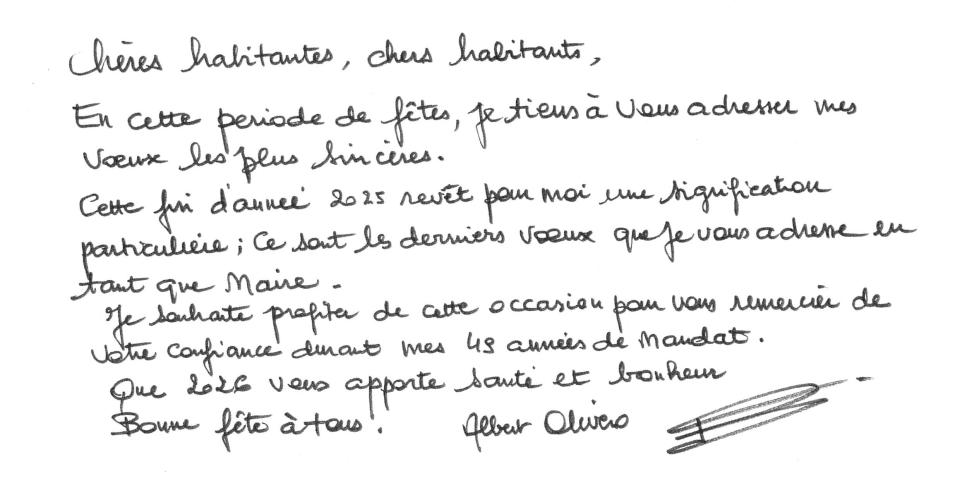 Chères habitantes, chers habitants,
En cette periode de fêtes, je tiens à vous adresser mes
vœux les plus sincères.
Cette fin d'année 2025 revêt pour moi une signification
particulière ; Ce sont les derniers vœux que je vous adresse en
tant que Maire.
Je souhaite profiter de cette occasion pour vous remercier de
votre confiance durant mes 49 années de mandat.
Que 2026 vous apporte santé et bonheur
Bonne fête à tous ! Albert Olivero